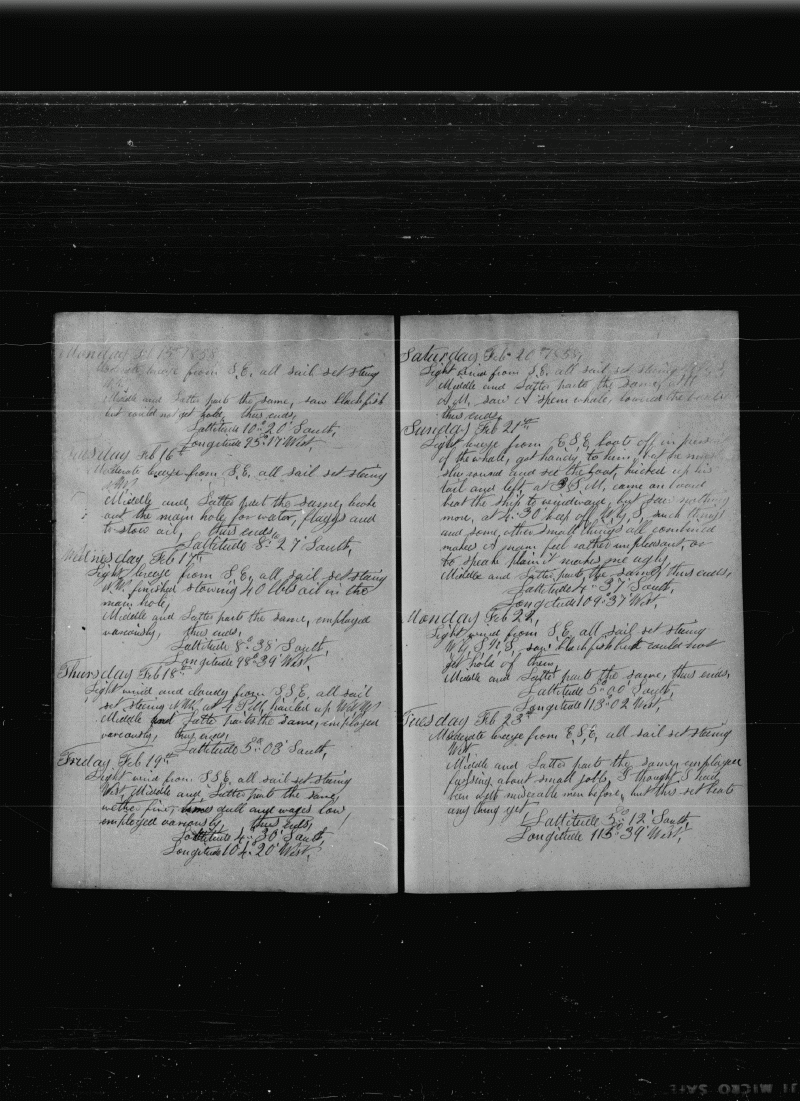 Monday Feb 15th 1858
Moderate breeze from S.E. all sail set steering
W.
Middle and Latter parts the same, saw Blackfish
but could not get hold, thus ends,
Lattitude 10° 20' South,
Longitude 95° 17' West,
Tuesday Feb 16th
Moderate breeze from S.E. all sail set steering
Middle and Latter part the same, broke
out the main hole for water, and
to stow oil, thus ends
Lattitude 8° 27' South,
Wednesday Feb 17th
Light breeze from S.E. all sail set steering
finished stowing 40 bbls oil in the
main hole,
Middle and Latter part the same, employed
variously, thus ends,
Lattitude 8° 38' South,
Longitude 98° 39' West,
Thursday Feb 18th
Light wind and cloudy from S.S.E, all sail
set steering at 4 P.M. hauled up
Middle and Latter parts the same, employed
variously, thus ends,
Lattitude 5° 03' South,
Friday Feb 19th
Light wind from S.S.E, all sail set steering
West, Middle and Latter part the same,
wether fine, times dull and wages low,
employed variously, thus ends,
Lattitude 4° 30' South,
Longitude 104° 20' West,
Saturday Feb 20th 1858,
Light wind from S.E. all sail set steering
Middle and Latter parts the same, at
A.M. saw A Sperm whale, lowered the boats
thus ends,
Sunday Feb 21st
Light breeze from E.S.E, boats off in
of the whale, got handy to him, but he must
slue round and see the boat, kicked up his
tail and left, at 3 P.M. came on board
beat the ship to windward, but saw nothing
more, at 4.30 keep off such things
and some other small things all combined
makes A man feel rather unpleasant, or
to speake plain makes me ugly,
Middle and Latter parts the same, thus ends,
Lattitude 4° 37' South,
Longitude 109° 37' West,
Monday Feb 22,
Light wind from S.E. all sail set steering
saw Blackfish but could not
get hold of them,
Middle and Latter parts the same, thus ends,
Lattitude 5° 00' South,
Longitude 113° 02' West,
Tuesday Feb 23d
Moderate breeze from E.S.E, all sail set steering
West,
Middle and Latter parts the same, employed
fussing about small jobs, I thought I had
been with miserable men before, but this set beats
anything yet,
Lattitude 5° 12' South
Longitude 115° 39' West,